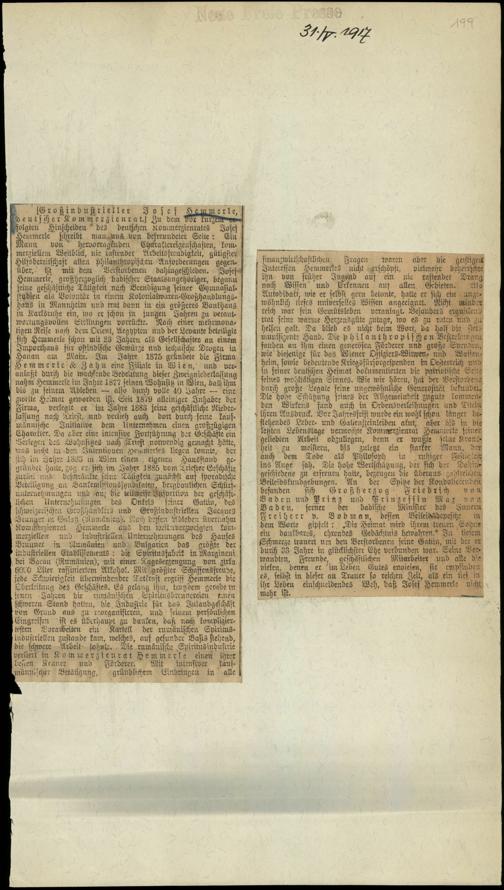 Neue Freie Presse
31.IV.1917
199
[Großindustrieller Josef Hemmerle,
deutscher Kommerzienrat.] Zu dem vor kurzem er-
folgten Hinscheiden des deutschen Kommerzienrates Josef
Hemmerle schreibt man uns von befreundeter Seite: Ein
Mann von hervorragenden Charaktereigenschaften, kom-
merziellem Weitblick, nie rastender Arbeitsfreudigkeit, gütigster
Hilfsbereitschaft allen philanthropischen Anforderungen gegen-
über, ist mit dem Verstorbenen dahingeschieden. Josef
Hemmerle, großherzoglich badischer Staatsangehöriger, begann
seine geschäftliche Tätigkeit nach Beendigung seiner Gymnasial-
studien als Volontär in einem Kolonialwaren-Großhandlungs-
haus in Mannheim und trat dann in ein größeres Bankhaus
in Karlsruhe ein, wo er schon in jungen Jahren zu verant-
wortungsvollen Stellungen vorrückte. Nach einer mehrmona-
tigen Reise nach dem Orient, Aegypten und der Levante beteiligte
sich Hemmerle schon mit 23 Jahren als Gesellschafter an einem
Importhaus für ostindische Gewürze und technische Drogen in
Hanau am Main. Im Jahre 1875 gründete die Firma
Hemmerle & Hahn eine Filiale in Wien, und ver-
anlaßt durch die wachsende Bedeutung dieser Zweigniederlassung
nahm Hemmerle im Jahre 1877 seinen Wohnsitz in Wien, das ihm
bis zu seinem Ableben — also durch volle 40 Jahre — eine
zweite Heimat geworden ist. Seit 1879 alleiniger Inhaber der
Firma, verlegte er im Jahre 1883 seine geschäftliche Nieder-
lassung nach Triest, und verlieh auch dort durch seine kauf-
männische Initiative dem Unternehmen einen großzügigen
Charakter. Da aber eine intensive Fortführung der Geschäfte ein
Verlegen des Wohnsitzes nach Triest notwendig gemacht hätte,
was nicht in den Intentionen Hemmerles liegen konnte, der
sich im Jahre 1883 in Wien einen eigenen Hausstand ge-
gründet hatte, zog er sich im Jahre 1885 vom Triester Geschäfte
zurück und beschränkte seine Tätigkeit zunächst auf sporadische
Beteiligung an
unternehmungen und auf die teilweise Inspektion der geschäft-
lichen Unternehmungen des Onkels seiner Gattin, des
schweizerischen Großhändlers und Großindustriellen Jacques
Brunner in Galatz (Rumänien). Nach dessen Ableben übernahm
Kommerzienrat Hemmerle aus den weitverzweigten kom-
merziellen und industriellen Unternehmungen des Hauses
Brunner in Rumänien und Bulgarien das größte der
industriellen Etablissements: die Spiritusfabrik in Margineni
bei Bacau (Rumänien), mit einer Tageserzeugung von zirka
                    Liter raffiniertem Alkohol. Mit größter Schaffensfreude,
jede Schwierigkeit überwindender Tatkraft ergriff Hemmerle die
Oberleitung des Geschäftes. Es gelang ihm, trotzdem gerade in
jenen Jahren die rumänischen Spiritusbrennereien einen
schweren Stand hatten, die Industrie für das Inlandgeschäft
von Grund aus zu reorganisieren, und seinem persönlichen
Eingreifen ist es überhaupt zu danken, daß nach komplizier-
testen Vorarbeiten ein Kartell der rumänischen Spiritus-
industriellen zustande kam, welches, auf gesunder Basis stehend,
die schwere Arbeit lohnte. Die rumänische Spiritusindustrie
verliert in Kommerzienrat Hemmerle einen ihrer
besten Kenner und Förderer. Mit intensiver kauf-
männischer Betätigung, gründlichem Eindringen in alle
finanzwirtschaftlichen Fragen waren aber die geistigen
Interessen Hemmerles nicht erschöpft, vielmehr beherrschte
ihn von früher Jugend auf ein nie rastender Drang
nach Wissen und Erkennen auf allen Gebieten. Als
Autodidakt, wie er selbst gern betonte, hatte er sich ein unge-
wöhnlich tiefes universelles Wissen angeeignet. Nicht minder
reich war sein Gemütsleben veranlagt. Besonders ergreifend
trat seine warme Herzensgüte zutage, wo es zu raten und zu
helfen galt. Da blieb es nicht beim Wort, da half die stets
munifizente Hand. Die philanthropischen Bestrebungen
fanden an ihm einen generösen Förderer und große Spenden,
wie diejenige für das Wiener Offiziers-Witwen- und Waisen-
heim, sowie bedeutende Kriegsfürsorgespenden in Oesterreich und
in seiner deutschen Heimat dokumentierten die patriotische Seite
seines wohltätigen Sinnes. Wie wir hören, hat der Verstorbene
durch große Legate seine ungewöhnliche Generosität bekundet.
Die hohe Schätzung seines der Allgemeinheit zugute kommen-
den Wirkens fand auch in Ordensverleihungen und Titeln
ihren Ausdruck. Vor Jahresfrist wurde ein wohl schon länger be-
stehendes Leber- und Gallensteinleiden akut, aber bis in die
letzten Lebenstage vermochte Kommerzienrat Hemmerle seiner
geliebten Arbeit obzuliegen, denn er wußte seine Krank-
heit zu meistern, bis zuletzt ein starker Mann, der
auch dem Tode als Philosoph in ruhiger Fassung
ins Auge sah. Die hohe Wertschätzung, der sich der Dahin-
geschiedene zu erfreuen hatte, bezeugen die überaus zahlreichen
Beileidskundgebungen. An der Spitze der Kondolierenden
befanden sich Großherzog Friedrich von
Baden und Prinz und Prinzessin Max von
Baden, ferner der badische Minister des Innern
Freiherr v. Bodman, dessen Beileidsdepesche in
dem Worte gipfelt: „Die Heimat wird ihrem treuen Sohne
ein dankbares, ehrendes Gedächtnis bewahren.“ In tiefem
Schmerze trauern um den Verstorbenen seine Gattin, mit der er
durch 33 Jahre in glücklichster Ehe verbunden war. Seine Ver-
wandten, Freunde, geschäftlichen Mitarbeiter und alle die
vielen, denen er im Leben Gutes erwiesen, sie empfinden
es, selbst in dieser an Trauer so reichen Zeit, als ein tief in
ihr Leben einschneidendes Weh, daß Josef Hemmerle nicht
mehr ist.